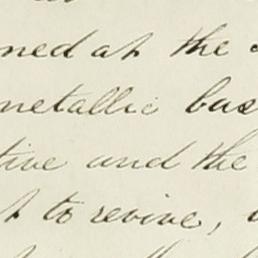 ned at the
metallic bas
tive and the
to revive,